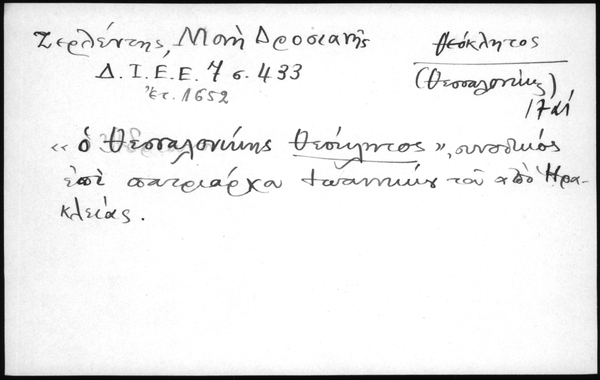 Ζερλέντης, Μονὴ Δροσιανῆς
Θεόκλητος
Δ.Ι.Ε.Ε. 7 σ. 433
(Θεσσαλονίκης)
Ἔτ. 1652
17 αἰ
«ὁ Θεσσαλονίκης Θεόκλητος», συνοδικός
ἐπὶ πατριάρχου Ἰωαννικίου τοῦ ἀπὸ Ἡρα-
κλείας.